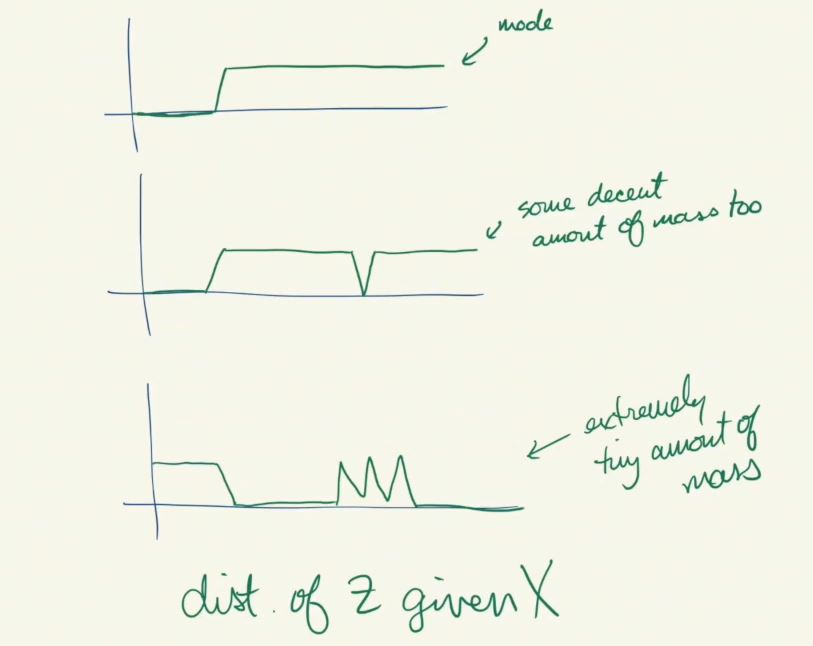 mode
some decent
amout of mass too
extremely
tiny amout of
mass
dist. of Z given X